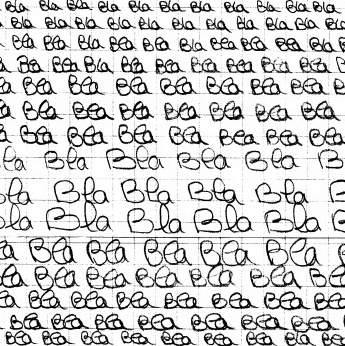 Bla Bla Bla Bla Bla Bla Bla Bla Bla
Bla Bla Bla Bla Bla Bla Bla Bla Bla
Bla Bla Bla Bla Bla Bla Bla Bla Bla Bla
Bla Bla Bla Bla Bla Bla Bla Bla Bla
Bla Bla Bla Bla Bla Bla Bla
Bla Bla Bla Bla Bla Bla Bla
Bla Bla Bla Bla Bla Bla Bla
Bla Bla Bla Bla
Bla Bla Bla Bla
Bla Bla Bla Bla
Bla Bla Bla Bla Bla
Bla Bla Bla Bla Bla
Bla Bla Bla Bla Bla Bla Bla
Bla Bla Bla Bla Bla Bla Bla
Bla Bla Bla Bla Bla Bla Bla Bla